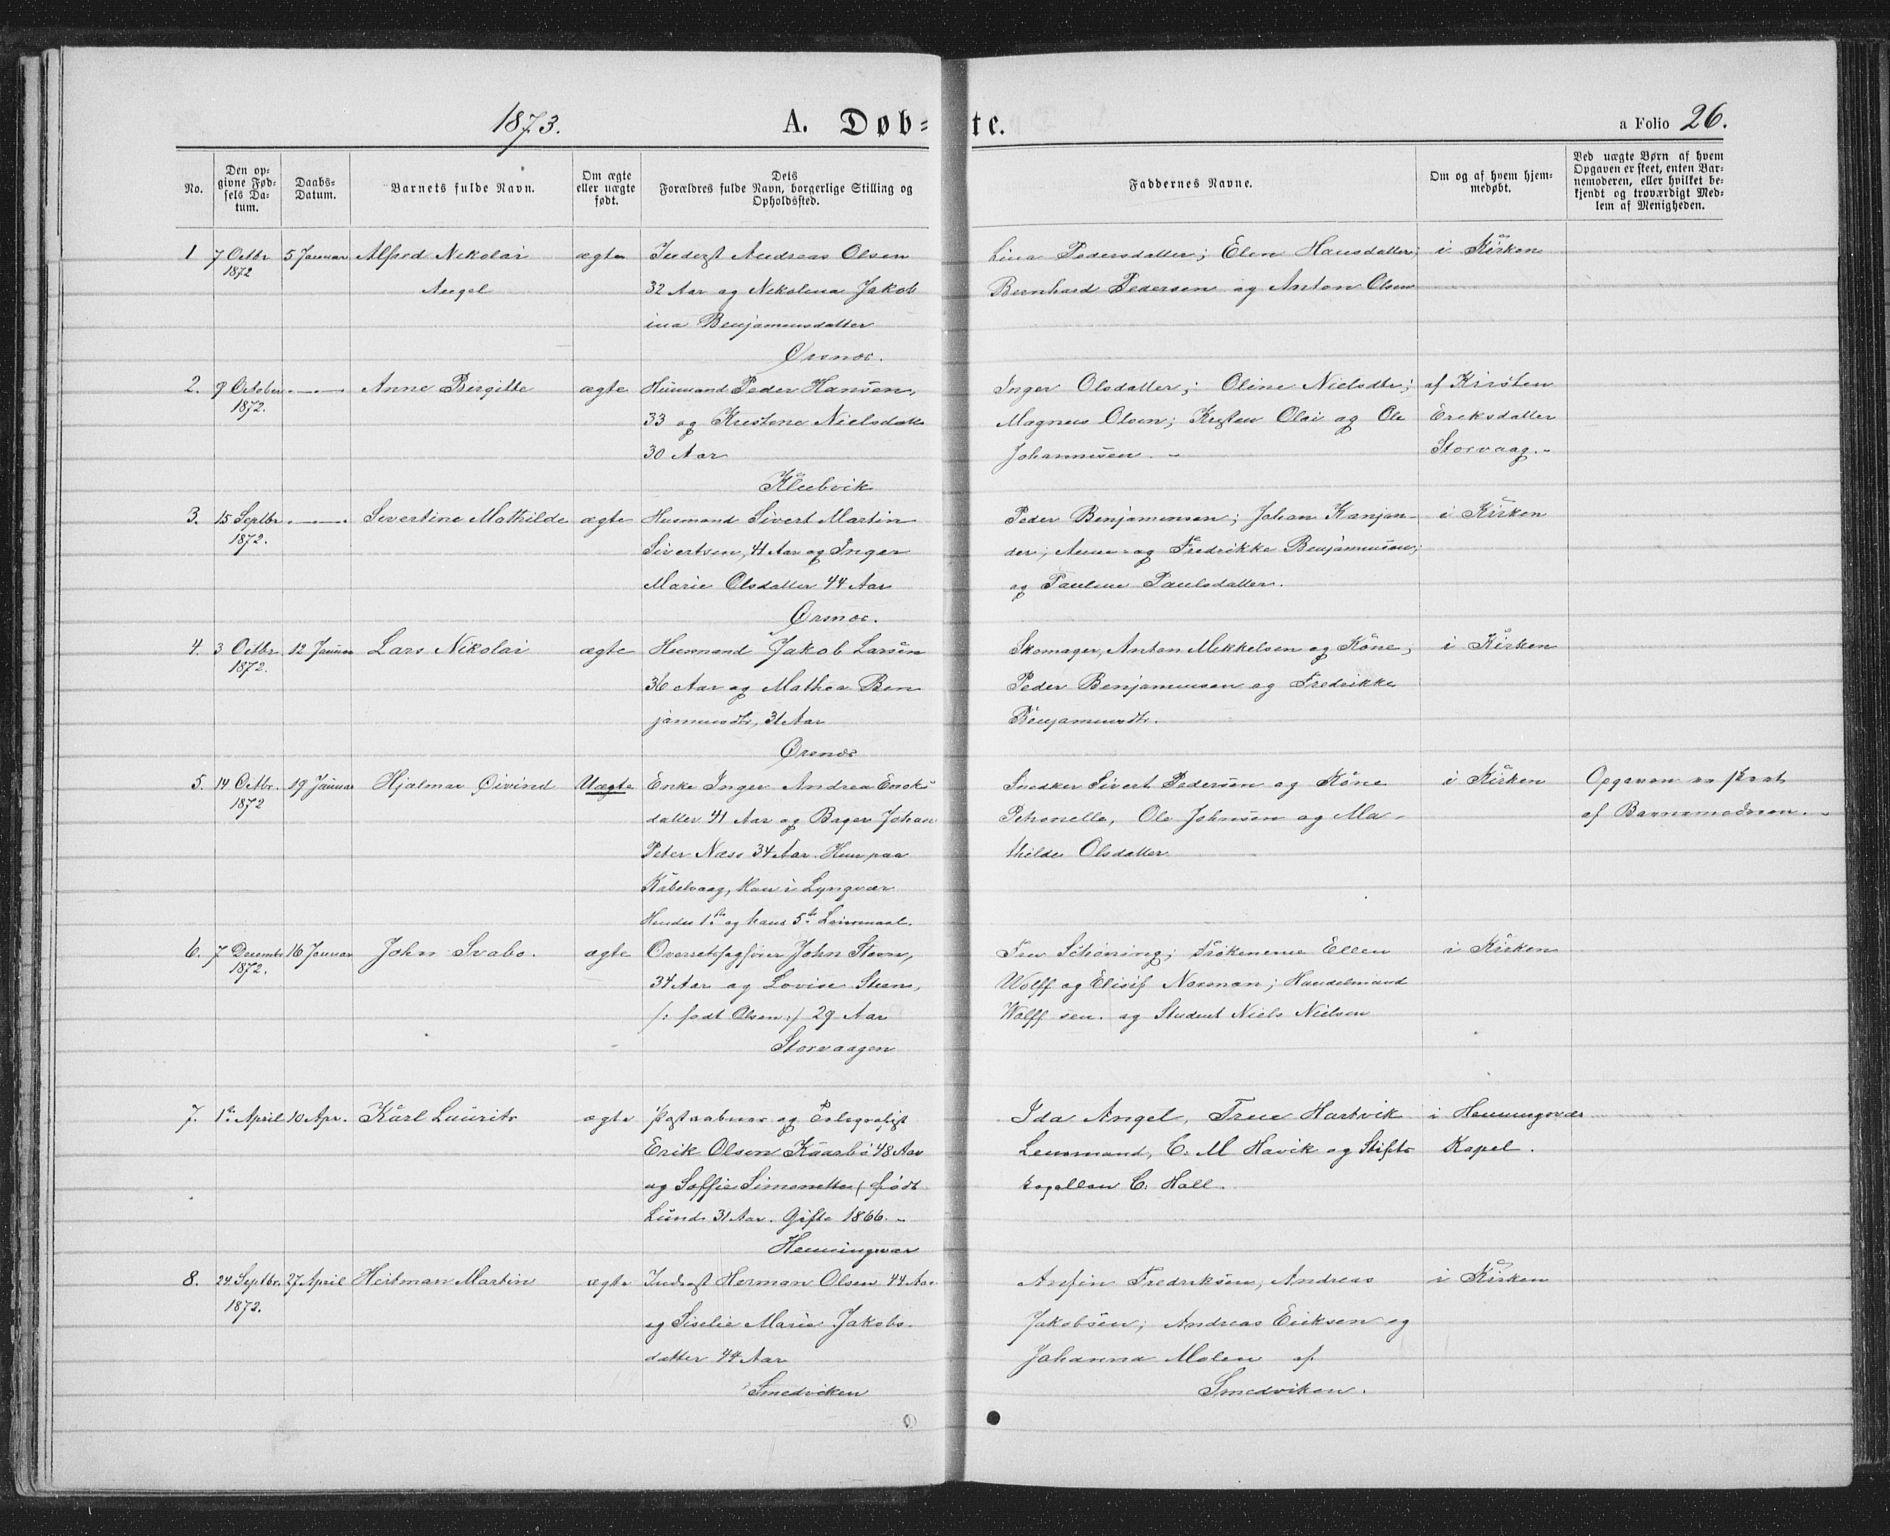 1873.
A. Døb-
te.
a Folio 26.
No.
Den op-
givne Fød-
sels Da-
tum.
Daabs-
Datum.
Barnets fulde Navn.
Om ægte
eller uægte
født.
Dets
Forældres fulde Navn, borgerlige Stilling og
Opholdssted.
Faddernes Navne.
Om og af hvem hjem-
medøbt.
Ved uægte Børn af hvem
Opgaven er skeet, enten Bar-
nemoderen, eller hvilket be-
kjendt og troværdigt Med-
lem af Menigheden.
1 7 Octbr 5 Januar Alfred Nikolai ægte Inderst Andreas Olsen Lina Pedersdatter; Elen Hansdatter; i Kirken
1872 Angel 32 Aar og Nikolina Jakob Bernhard Pedersen og Anton Olsen
ina Benjaminsdatter
Ørsnæs.
2. 9 October Anne Birgitte ægte Husmand Peder Hansen, Inger Olsdatter; Oline Nielsdtr; af Kirsten
1872. 33 og Kristine Nielsdatt Magnus Olsen; Kristen Olai og Ole Eriksdatter
30 Aar Johannesen. Storvaag.
Kleebvik
3. 15 Septbr Sivertine Mathilde ægte Husmand Sivert Martin Peder Benjaminsen; Johan i Kirken
1872. Sivertsen, 41 Aar og Inger der; Anne og Fredrikke Benjaminsen;
Marie Olsdatter 44 Aar og Pauline Paulsdatter.
Ørsnæs.
4. 3 Octbr 12 Januar Lars Nikolai ægte Husmand Jakob Larsen Skomager, Anton Mikkelsen og Kone; i Kirken
1872. 36 Aar og Mathea Ben Peder Benjaminsen og Fredrikke
jaminsdtr, 31 Aar Benjaminsdtr.
Ørsnæs
5. 14 Octbr. 19 Januar Hjalmar Eivind Uægte Enke Inger Andrea Enoks Snedker Sivert Pedersen og Kone i Kirken Opgaven er skeet
1872 datter 41 Aar og Bager Johan Petronelle, Ole Johnsen og Ma- af Barnemoderen.
Peter Næss 34 Aar. Hun paa thilde Olsdatter
Kabelvaag, Han i Lyngvær
Hendes 1ste og hans 5te Leiermaal.
6. 7 Decembr 16 Januar John Svabo. ægte Oversretssagfører John Steen, Fru Schøning; Frøkenerne Ellen i Kirken
1872. 34 Aar og Lovise Steen, Wolff og Elisif Norman; Handelsmand
/: født Olsen :/ 29 Aar Wolff sen. og Student Niels Nielsen
Storvaagen
7. 1ste April 10 Apr. Karl Laurits ægte Postaabner og Ida Angel, Fru Hartvik i Henningsvær
Erik Olsen Kaarbø 48 Aar Lensmand, C. M Havik og Stifts Kapel.
og Soffie Simonette (født kapellan C. Hall.
Lund 31 Aar. Gifte 1866.
Henningsvær
8. 24. Septbr. 27 April Heitman Martin ægte Inderst Herman Olsen 44 Aar Arnfin Fredriksen, Andreas i Kirken
1872. og Siselie Marie Jakobs- Jakobsen; Andreas Eriksen og
datter 44 Aar Johanna Molen af
Smedviken Smedviken.